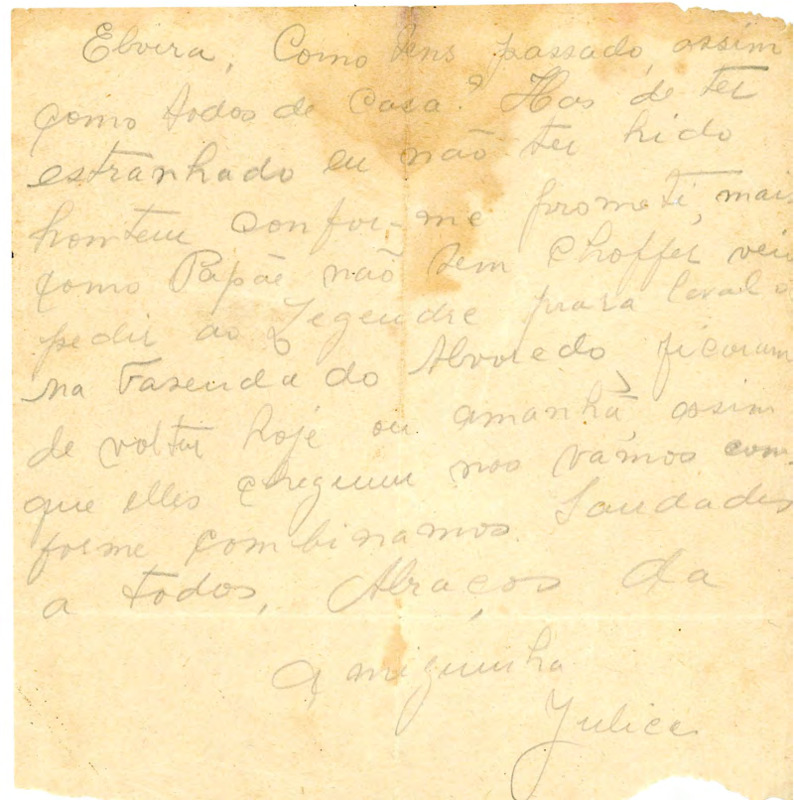 Elvira, Como tens passado, assim
como todos de casa? Has de ter
estranhado eu não ter hido
hontem confor-me prometi, mais
como Papãe não tem choffer veiu
pedir ao Legendre para leval o
na Fazenda do Alvoredo ficaram
de voltar hoje ou amanhã, assim
que elles cheguem nos vamos com
forme combinamos. Saudades
a todos, Abraços da
Amiguinha
Julica